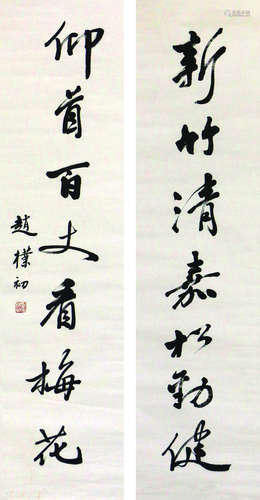 新竹清嘉松勁健
仰首百丈看梅花
趙樸初